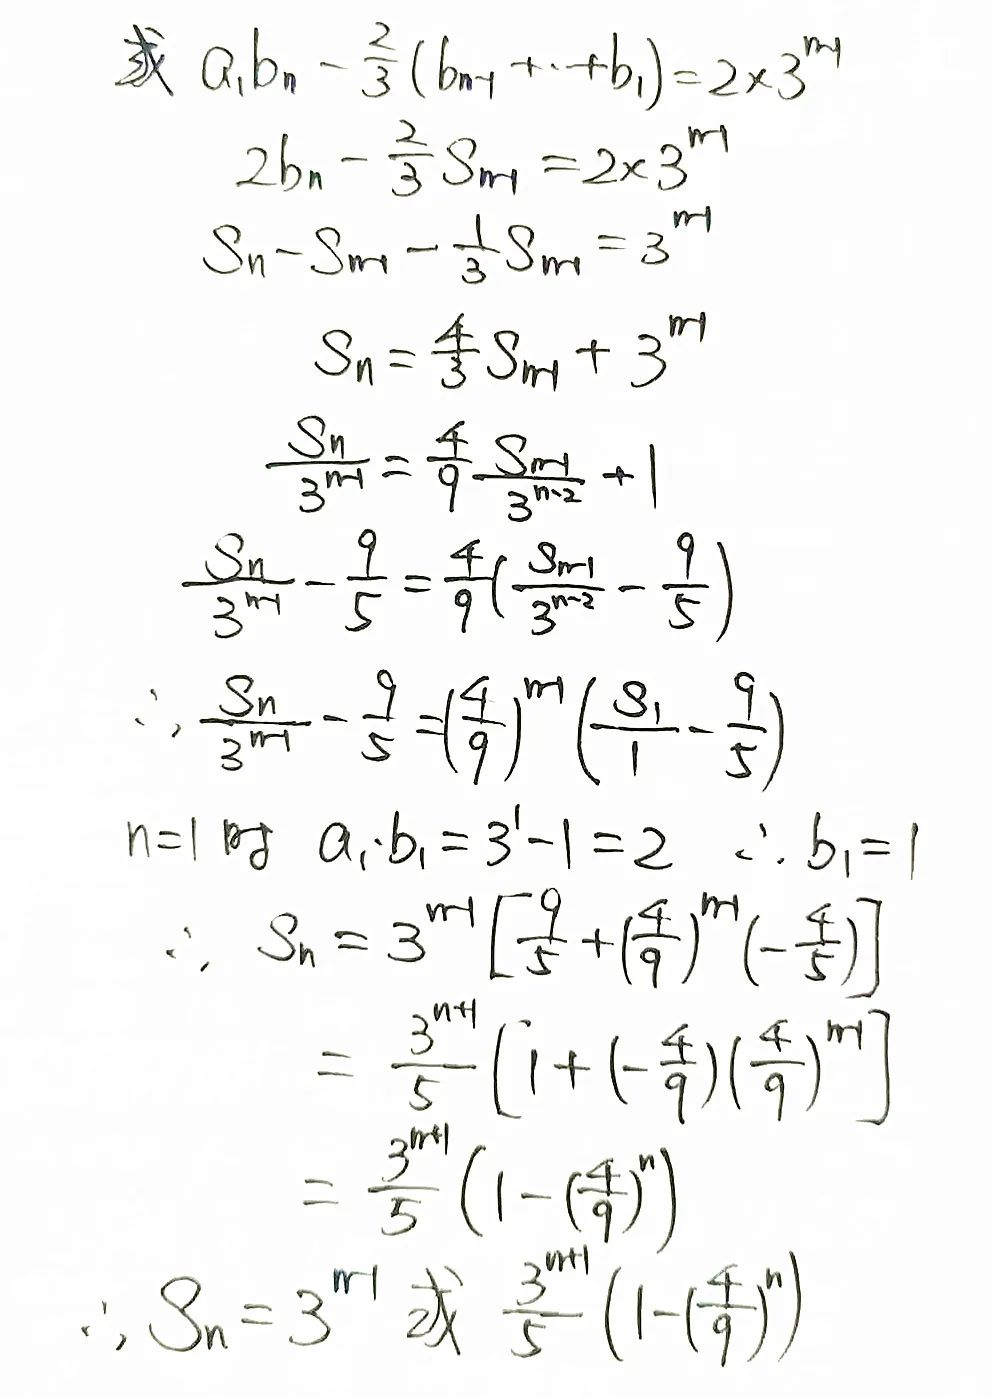 或 a₁bₙ - 2/3 (bₙ₋₁ + ⋯ + b₁) = 2×3ⁿ⁻¹
2bₙ - 2/3 Sₙ₋₁ = 2×3ⁿ⁻¹
Sₙ - Sₙ₋₁ - 1/3 Sₙ₋₁ = 3ⁿ⁻¹
Sₙ = 4/3 Sₙ₋₁ + 3ⁿ⁻¹
Sₙ/3ⁿ⁻¹ = 4/9 Sₙ₋₁/3ⁿ⁻² + 1
Sₙ/3ⁿ⁻¹ - 9/5 = 4/9 (Sₙ₋₁/3ⁿ⁻² - 9/5)
∴, Sₙ/3ⁿ⁻¹ - 9/5 = (4/9)ⁿ⁻¹ (S₁/1 - 9/5)
n=1时 a₁·b₁ = 3¹ - 1 = 2 ∴ b₁ = 1
∴, Sₙ = 3ⁿ⁻¹ [9/5 + (4/9)ⁿ⁻¹ (-4/5)]
= 3ⁿ⁺¹/5 [1 + (-4/9)(4/9)ⁿ⁻¹]
= 3ⁿ⁺¹/5 (1 - (4/9)ⁿ)
∴, Sₙ = 3ⁿ⁻¹ 或 3ⁿ⁺¹/5 (1 - (4/9)ⁿ)